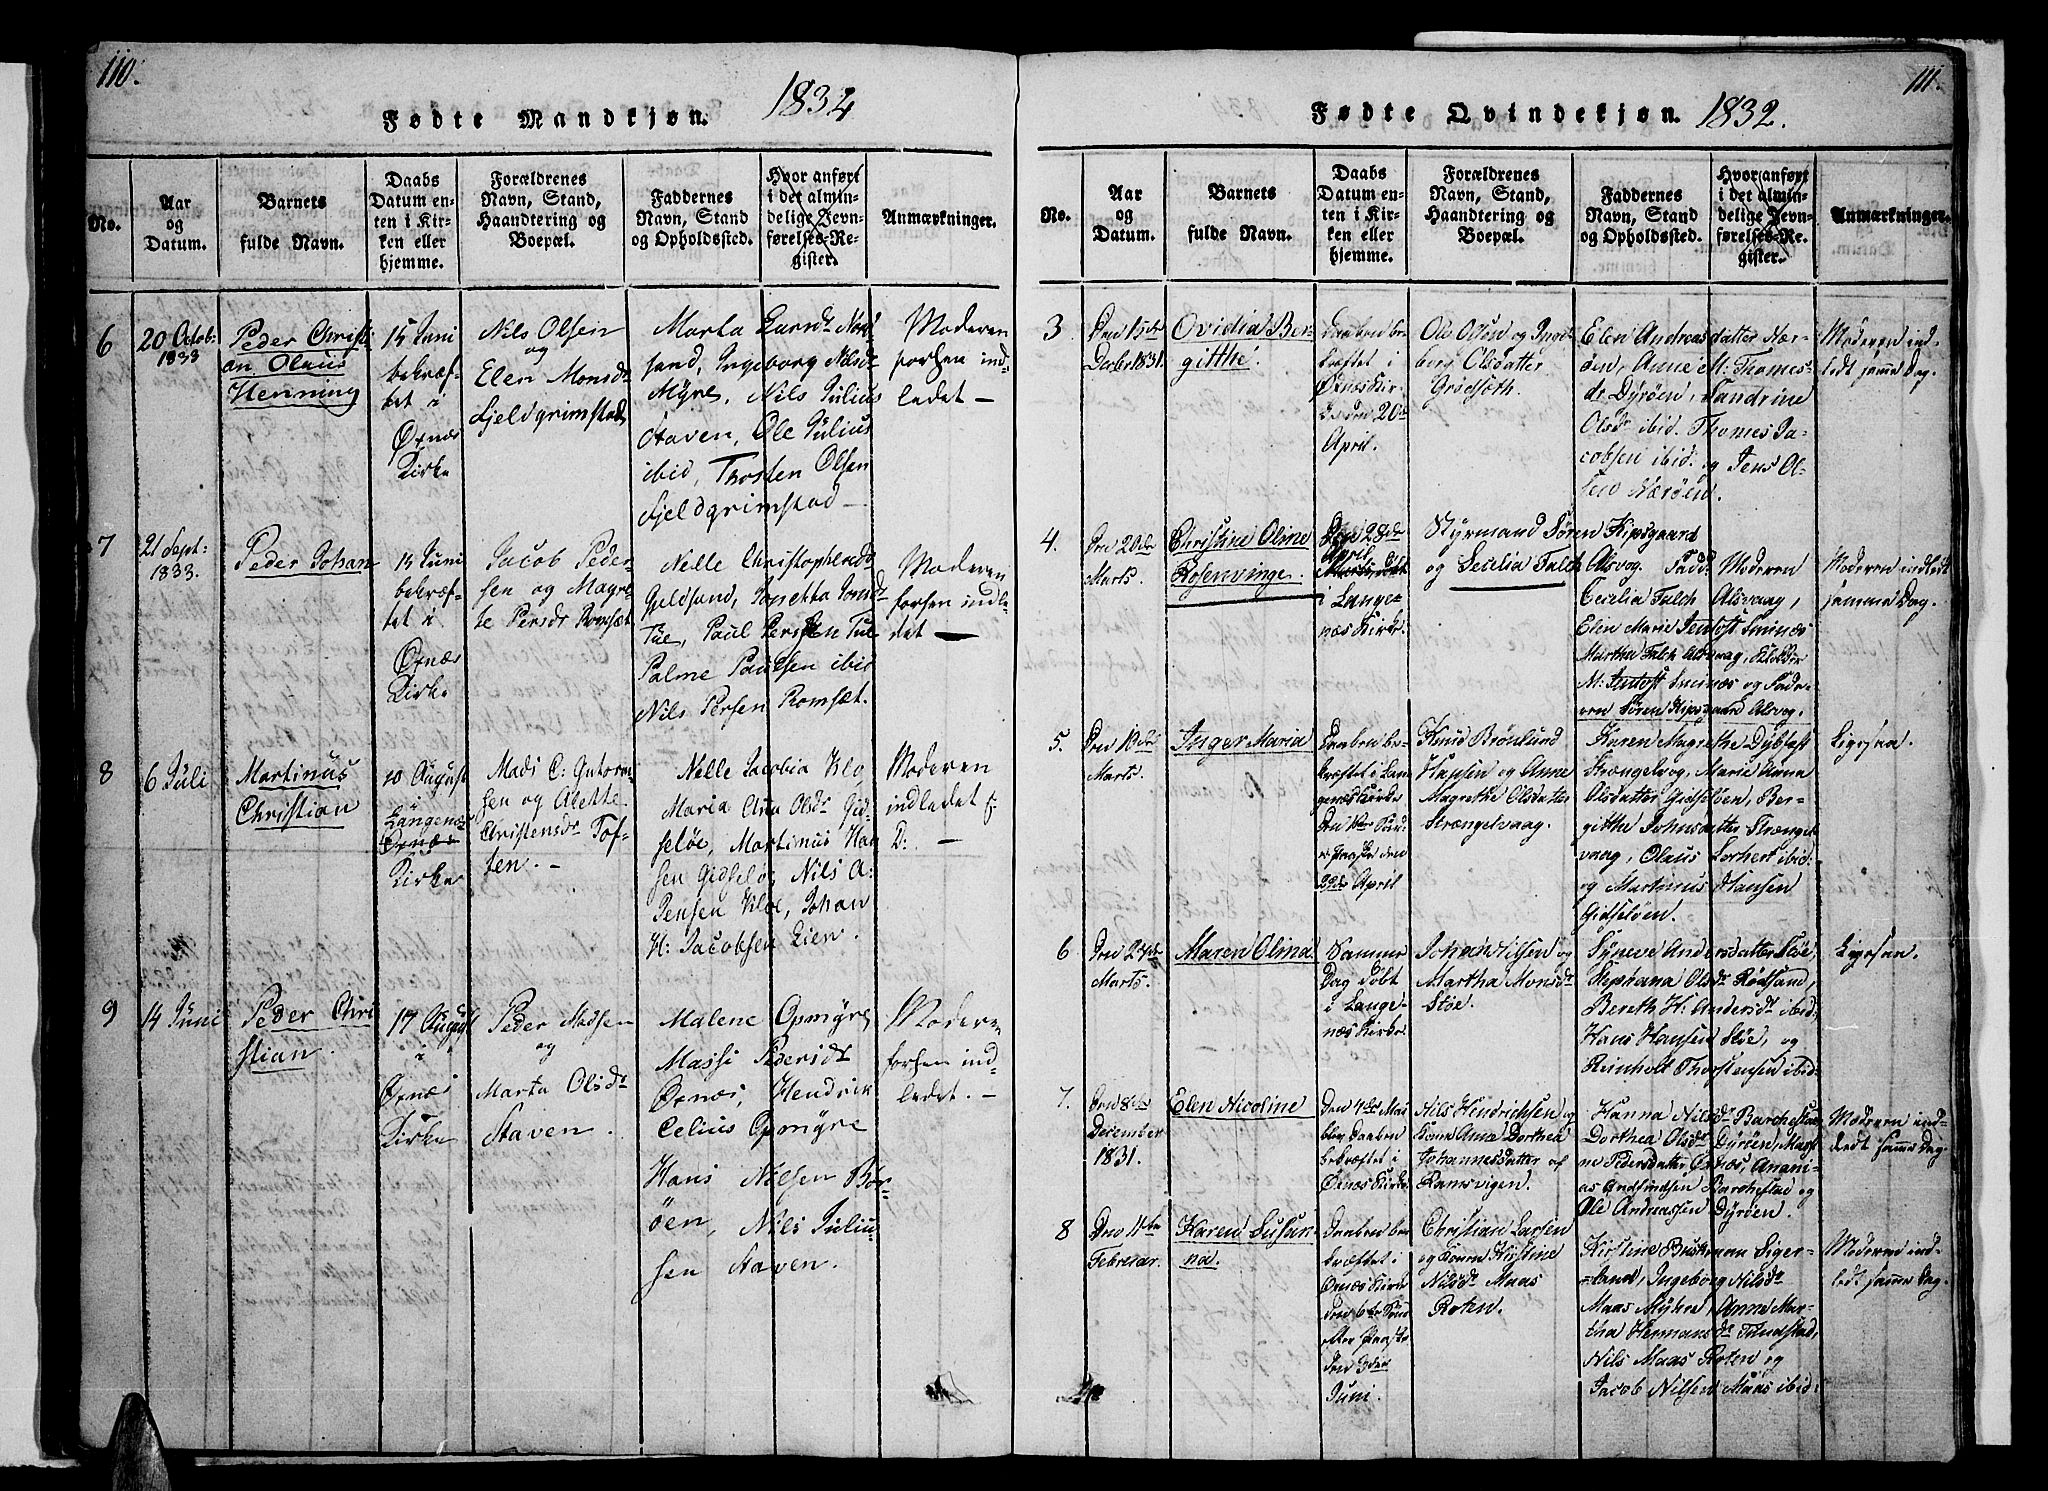 110.
1834
Fødte Mandkjøn.
No.
Aar og Datum.
Barnets fulde Navn.
Daabs Datum enten i Kirken eller hjemme.
Forældrenes Navn, Stand, Haandtering og Boepæl.
Faddernes Navn, Stand og Opholdssted.
Hvor anført i det almindelige Jevnførelses-Register.
Anmærkninger.
6
20 Octob:
1833
Peder Christi-
an Olaus
Henning
15 Juni
bekræf-
tet i
Øxnæs
Kirke
Nils Olsen
og
Elen Monsdr
Fjeldgrimstad
Marta Larsdr Nord
sand, Ingeborg Nilsdr
Myre, Nils Julius
Staven, Ole Julius
ibid, Thosten Olsen
Fjeldgrimstad
Moderen
forhen ind-
ledet —
7
21 Sept:
1833.
Peder Johan
15 Juni
bekræf-
tet i
Øxnæs
Kirke
Jacob Peder-
sen og Magre-
te Persdr Romsæt
Nelle Christophersdr
Guldsand, Jonetta Jonsdr
Tue, Paul Persen Tue
Palme Paulsen ibid
Nils Persen Romsæt.
Moderen
forhen indle-
det —
8
6 Juli
Martinus
Christian
10 August
Langenæs
Øxnæs
Kirke
Mads C: Gutorm-
sen og Alette
Christensdr Tof-
ten. -
Nelle Jacobia Klo
Maria Ana Olsdr Gid-
seløe, Martinus Han
sen Gidselø, Nils A:
Jensen Kloe, Johan
H: Jacobsen Eien.
Moderen
indledet s:
D: —
9
14 Juni
Peder Chri
stian.
17 August
i
Øxnæs
Kirke
Peder Madsen
og
Marta Olsdr
Staven.
Malene Opmyre
Massi Pedersdr
Øxnæs, Hendrik
Celius Opmyre
Hans Nilsen Bor-
øen, Nils Juliu-
sen Staven.
Moderen
forhen ind-
ledet. -
111.
Fødte Qvindekjøn. 1832.
No.
Aar og Datum.
Barnets fulde Navn.
Daabs Datum enten i Kirken eller hjemme.
Forældrenes Navn, Stand, Haandtering og Boepæl.
Faddernes Navn, Stand og Opholdssted.
Hvor anført i det almindelige Jevnførelses-Register.
Anmærkninger.
3
Den 15de
Decber 1831.
Ovidia Ber-
gitthe.
Daaben be-
kræftet i
Øxnæs Kir-
ke den 20de
April.
Ole Olsen og Inge-
borg Olsdatter
Grødseth.
Elen Andreasdatter Nær-
øen, Anne M: Thomes-
dr Dyrøen, Tandrine
Olsdr ibid. Thomes Ja-
cobsen ibid. og Jens Ol-
sen Nærøen.
Moderen ind-
ledt samme Dag.
4.
Den 20de
Marts.
Christine Oline
Rosenvinge.
Den 28de
April
i Lange-
næs Kirke.
Styrmand Søren Kipsgaard
og Cecelia Falch Alsvog.
Fadd: Moderen
Cecilia Falch Alsvaag,
Elen Marie Jentoft Sminæs
Martha Falch Alsvaag,
M: Jentoft Sminæs og Fade-
ren Søren Kipsgaard Alsvog.
Moderen indledt
samme Dag.
5.
Den 10de
Marts.
Inger Maria
Daaben be-
kræftet i Lan-
genæs Kirke
den 22de April
Knud Brønlund
Hansen og Anne
Magrethe Olsdatter
Strængelvaag.
Karen Magrethe Dybfest
Strængelvog, Marie Anna
Olsdatter Gidseløen, Ber-
gitthe Johnsdatter Strængel-
vaag, Olaus Lorhert ibid:
og Martinus Hansen
Gidseløen.
Ligesaa.
6
Den 24de
Marts.
Maren Olina
Samme
Dag døbt
i Lange-
næs Kirke.
Johan Nilsen og
Martha Monsdr
Støe.
Syneve Andersdatter Støe,
Stephana Olsdr Rødsand,
Bereth H. Andersdr ibid:
Hans Hansen Støe, og
Reinholt Thorstensen ibid.
Ligesaa.
7.
Den 8de
December
1831.
Elen Nicoline
Den 4de Mai
blev Daaben
bekræftet i
Øxnæs Kirke.
Nils Hindrichsen og
Kone Ane Dorthea
Johannesdatter af
Ramsvigen.
Hanna Nilsdr Barchestad
Dorthea Olsdr Dyrøen, Mari-
ne Pedersdatter Øxnæs, Anani-
as Andfindsen Barchestad og
Ole Andreassen Dyrøen.
Moderen ind-
ledt samme Dag.
8
Den 11te
Februar.
Karen Susan-
na.
Daaben be-
kræftet i
Øxnæs Kirke
den 6te Sønd
efter Paaske
den 3die
Juni.
Christian Larsen
og Konen Kirstine
Nilsdr Maas
Roten.
Kirstine Buskman Siger-
land, Ingeborg Nilsdr
Maas Myhre, Anne Mar-
tha Hermansdr Tundstad,
Nils Maas Roten og
Jacob Nilsen Maas ibid.
Moderen ind-
ledt samme Dag.